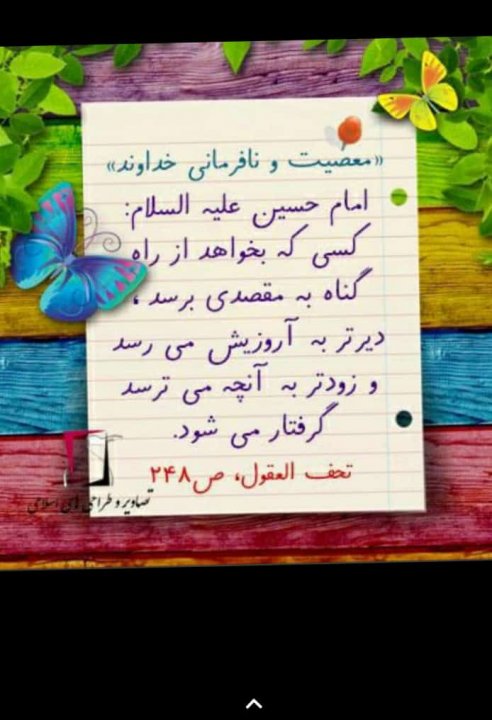 «معصیت و نافرمانی خداوند»
امام حسین علیه السلام:
کسی که بخواهد از راه
گناه به مقصدی برسد ،
دیرتر به آروزیش می رسد
و زودتر به آنچه می ترسد
گرفتار می شود.
تحف العقول، ص۲۴۸
تصاویر و طراحی های اسلامی